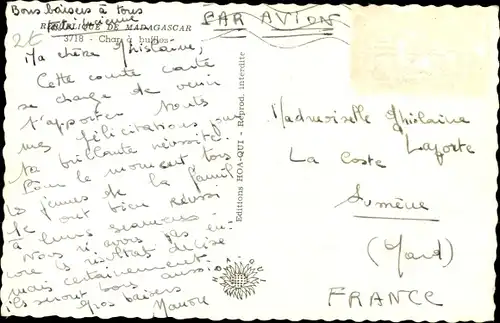 Bons baisers à tous
PAR AVION
REPUBLIQUE DE MADAGASCAR
3718 - Char à buffles
Ma chère Ghislaine,
Cette courte carte
se charge de venir
t'apporter toutes
mes félicitations pour
ta brillante réussite.
Pour le moment tous
les jeunes de la famille
ont bien réussi
à leurs examens.
Nous n'avons pas en-
core le résultat de
mais certainement
ils seront bons aussi
Gros baisers
Editions HOA-QUI - Reprod. interdite
Mademoiselle Ghislaine
Laporte
La Coste
Sumène
(Gard)
FRANCE